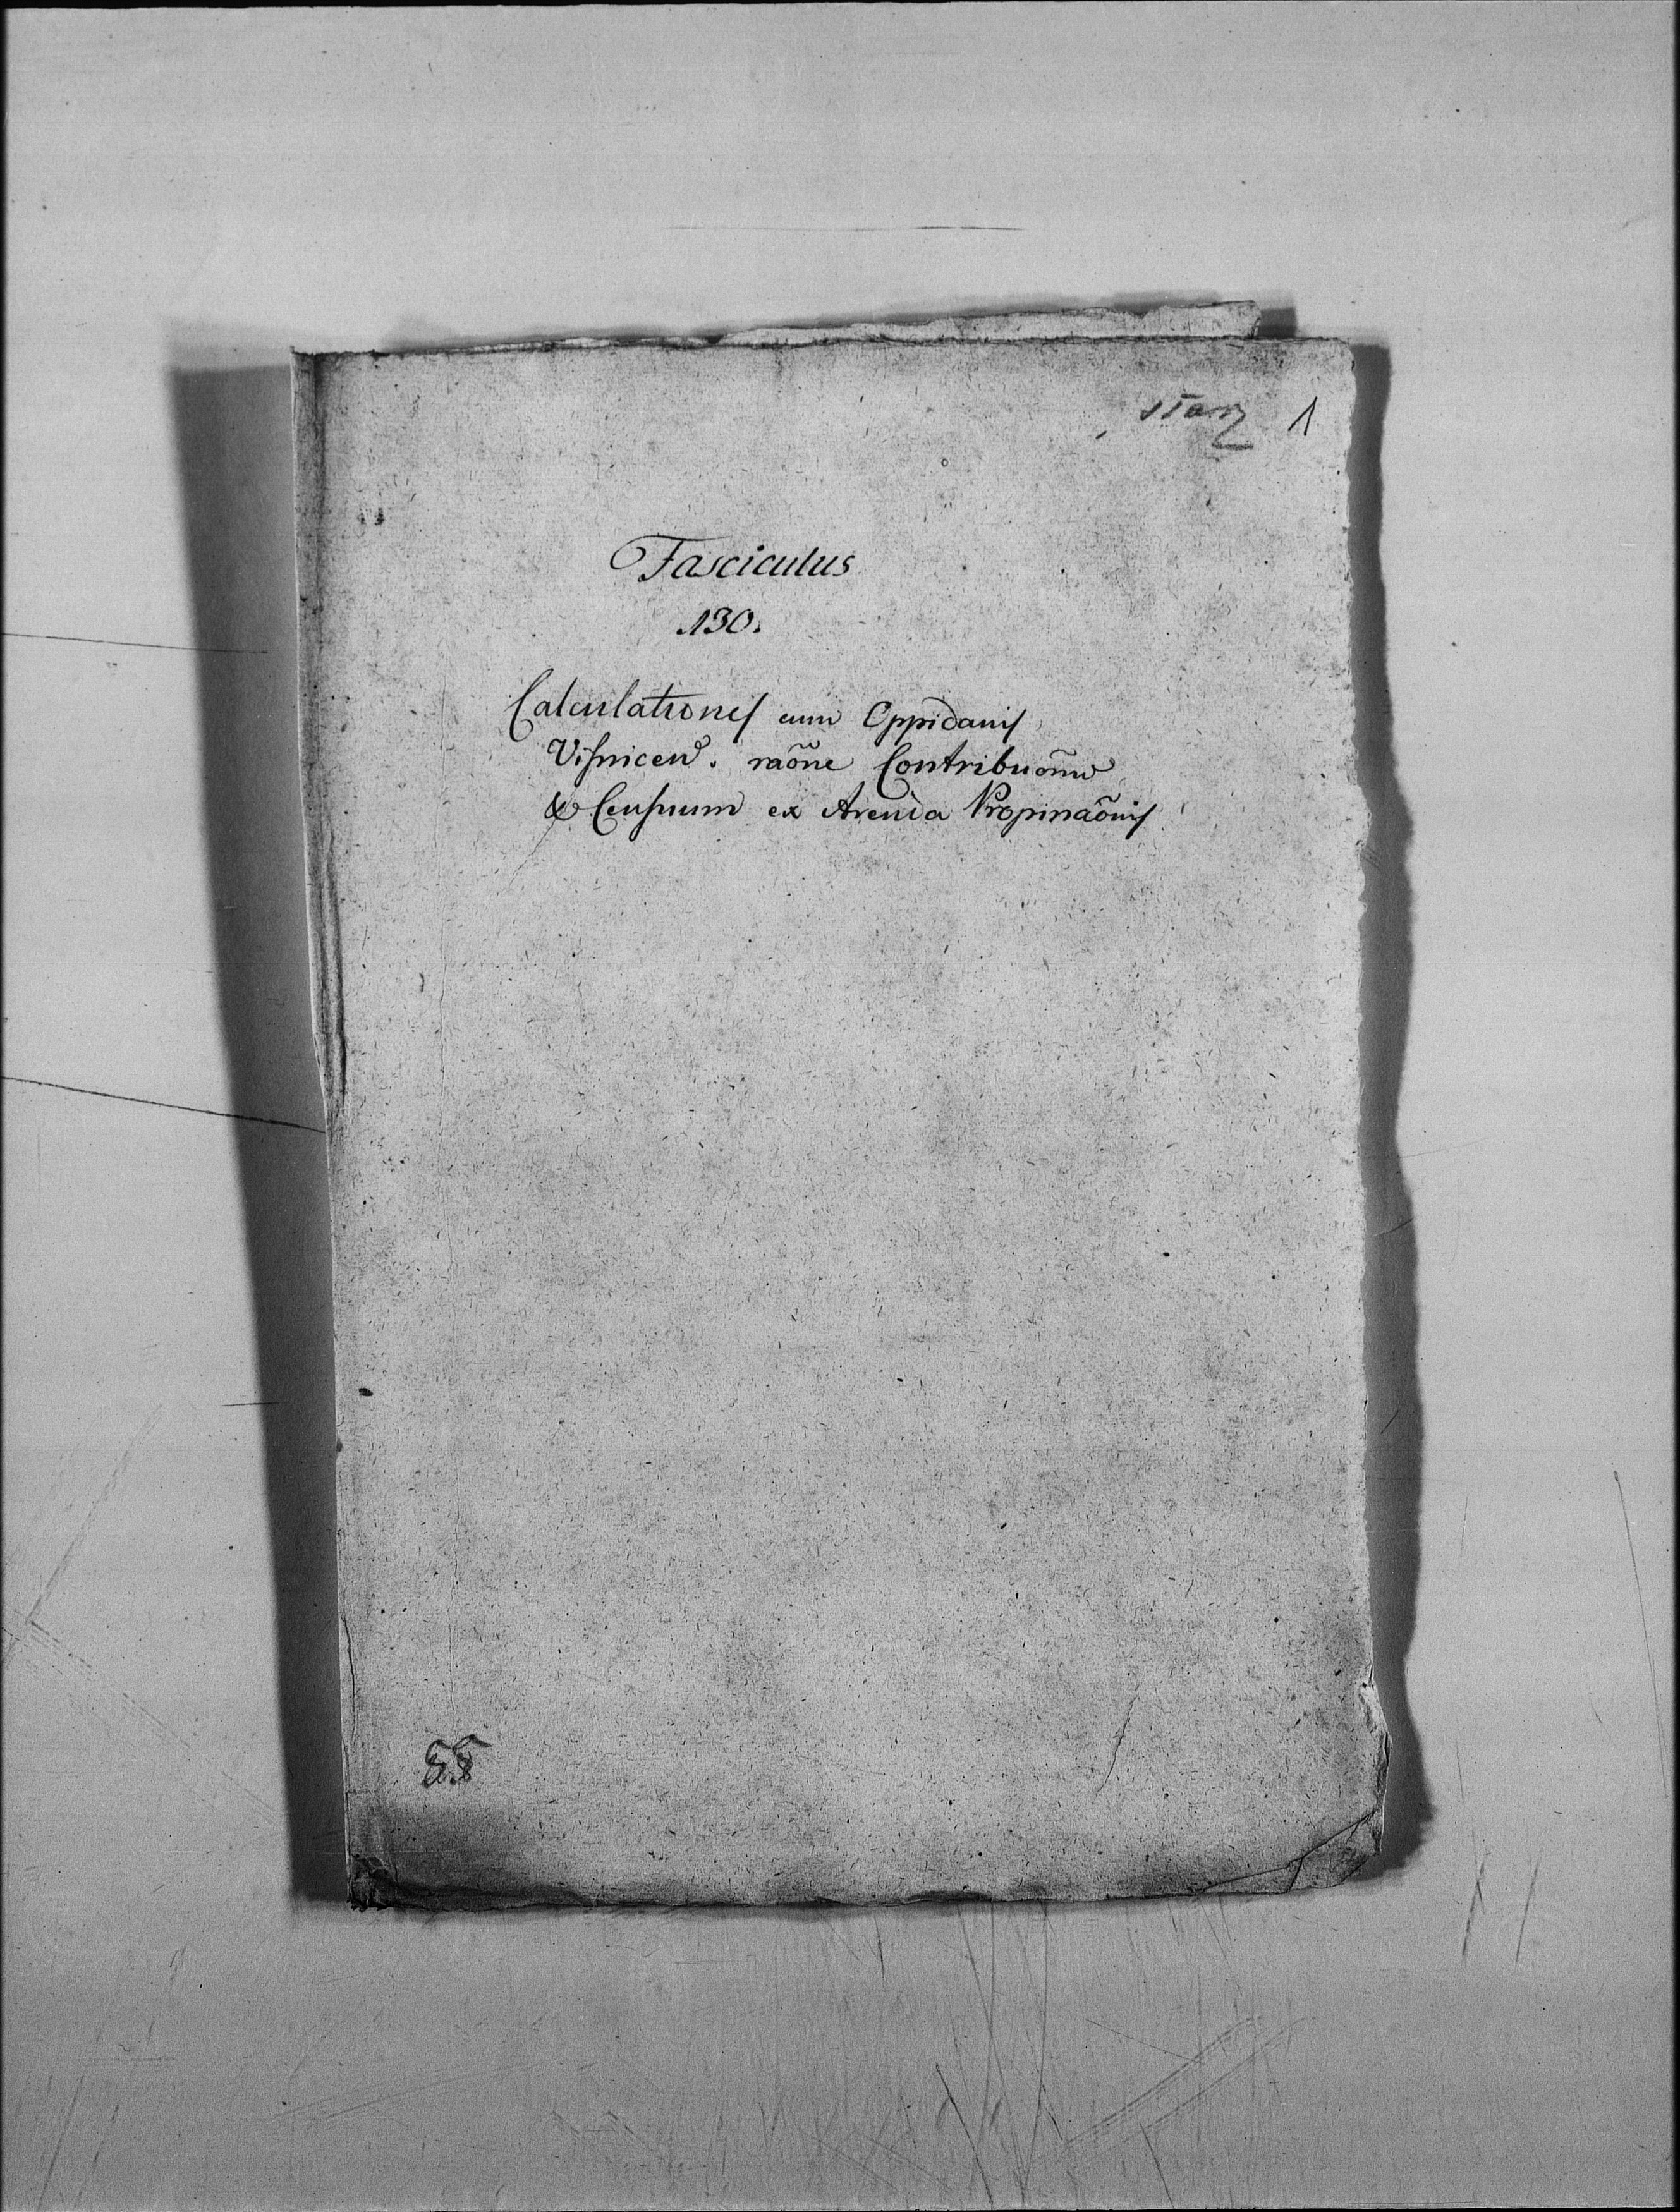 1
Fasciculus
130.
Calculationes cum Oppidanis
Visnicen̄. raõne Contribuonũ
& Censuum ex Arenda Propinaõnis